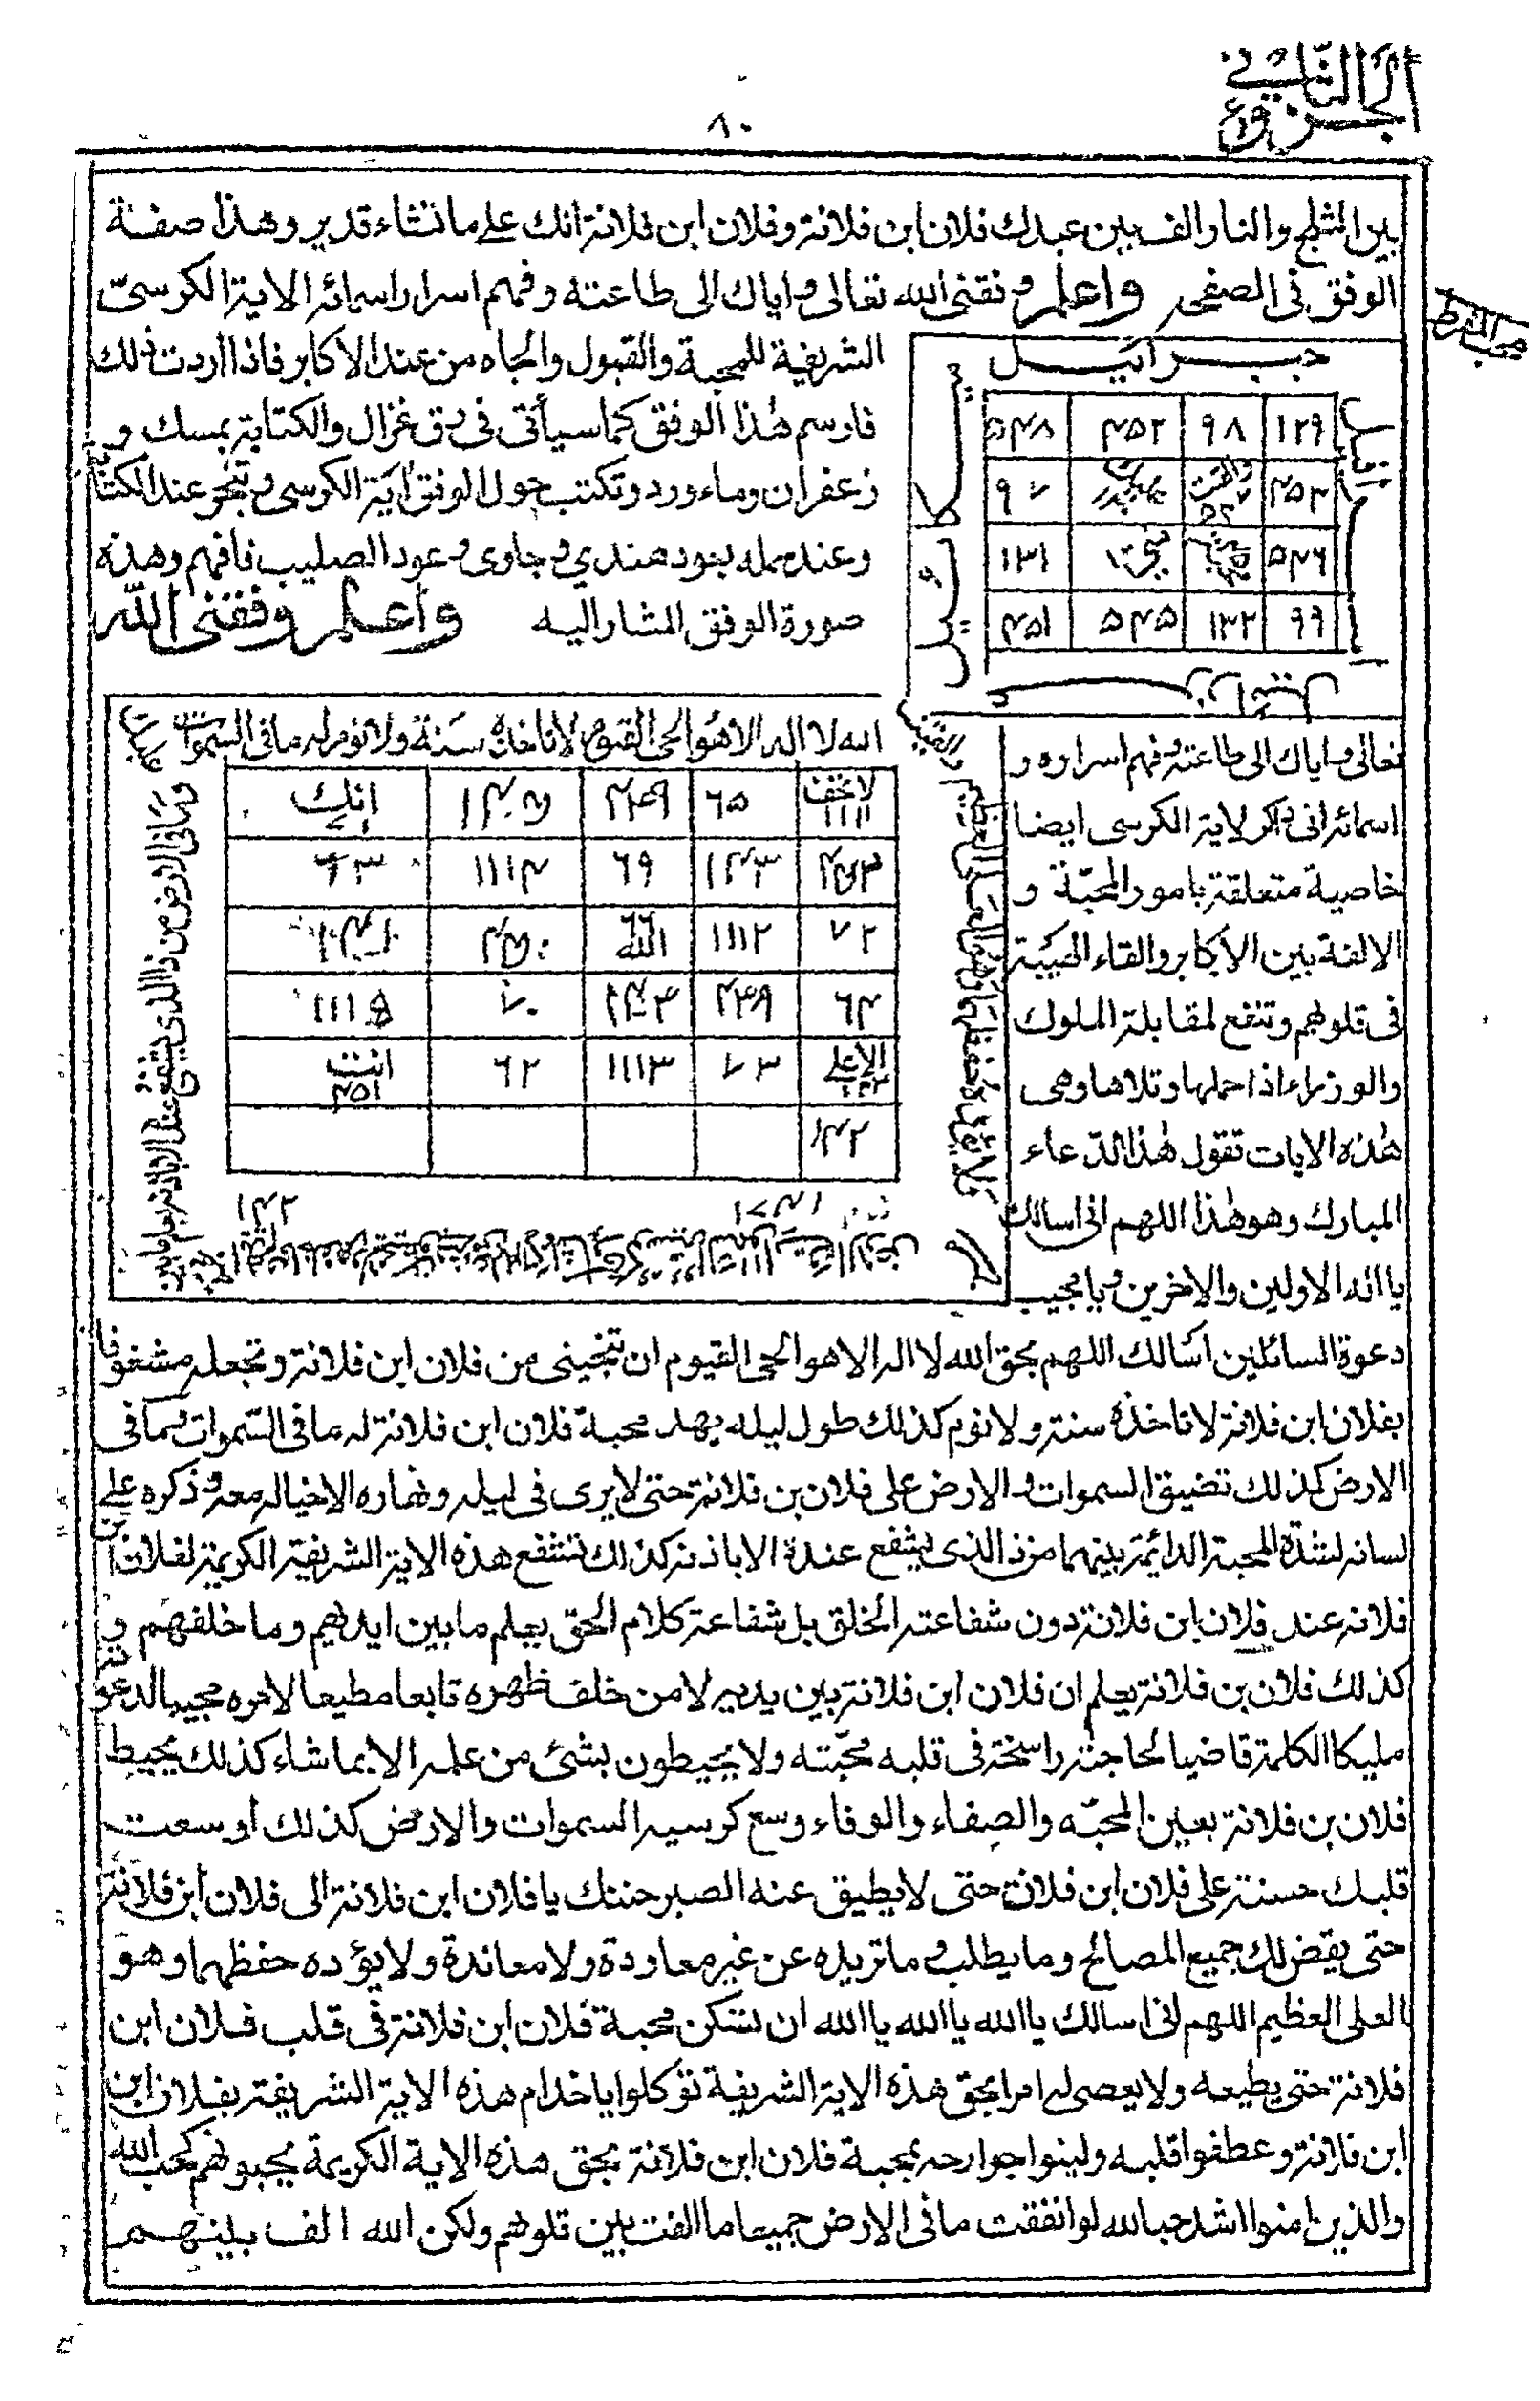 الجزء الثاني
٨٠
بين الثلج والنار الف بين عبدك فلان ابن فلانة وفلان ابن فلانة انك على ما تشاء قدير وهذا صفة
الوفق في الصفحه واعلم وفقني الله تعالى واياك الى طاعته وفهم اسرار اسمائه الاية الكرسيّ
الشريفة للمحبة والقبول والجاه من عند الاكابر فاذا اردت ذلك
فارسم هذا الوفق كما سيأتي في رق غزال والكتابة بمسك و
زعفران وماء ورد وتكتب حول الوفق آية الكرسي وتبخر عند الكتابة
وعند حمله بنود هندي وجاوي وعود الصليب فافهم وهذه
صورة الوفق المشار اليه واعلم وفقني الله
جبرائيل
١٢٩ ٩٨ ٤٥٢ ٥٤٨
٤٥٣
٥٤٦ ١٣١
٩٩ ١٣٢ ٥٤٥ ٤٥١
تعالى واياك الى طاعته وفهم اسراره و
اسمائه اني ذاكر لاية الكرسي ايضا
خاصية متعلقة بامور المحبّة و
الالفة بين الاكابر والقاء الهيبة
في قلوبهم وتنفع لمقابلة الملوك
والوزراء اذا حملها وتلاها وهي
هذه الايات تقول هذا الدّعاء
المبارك وهو هذا اللهم اني اسالك
يا اله الاولين والاخرين ويا مجيب
الله لا اله الا هو الحي القيوم لا تاخذه سنة ولا نوم له ما في السموات
وما في الارض من ذا الذي يشفع عنده الا باذنه يعلم ما بين
لا تخف ١١١١ ٦٥ انك
٦٩ ١١١٤ ٦٣
٧٢ ١١١٢ الله ٦٦
٦٤ ٧٠
الاعلى ٧٣ ١١١٣ ٦٢ انت ٤٥١
١٤٢
١٤٢
دعوة السائلين اسالك اللهم بحق الله لا اله الا هو الحي القيوم ان تنجيني من فلان ابن فلانة وتجعله مشغوفا
بفلان ابن فلانة لا تاخذه سنة ولا نوم كذلك طول ليله يهد محبة فلان ابن فلانة له ما في السّموات وما في
الارض كذلك تضيق السموات والارض على فلان بن فلانة حتى لا يرى في ليله ونهاره الا خياله معه وذكره على
لسانه لشدة المحبة الدائمة بينهما من ذا الذي يشفع عنده الا باذنه كذلك تشفع هذه الاية الشريفة الكريمة لفلان بن
فلانة عند فلان ابن فلانة دون شفاعته الخلق بل شفاعة كلام الحق يعلم ما بين ايديهم وما خلفهم و
كذلك فلان بن فلانة يعلم ان فلان ابن فلانة بين يديه لا من خلف ظهره تابعا مطيعا لامره مجيبا لدعوته
مليكا الكلمة قاضيا لحاجته راسخة في قلبه محبّته ولا يحيطون بشئ من علمه الا بما شاء كذلك يحيط
فلان بن فلانة بعين المحبّه والصفاء والوفاء وسع كرسيه السموات والارض كذلك أوسعت
قلبك حسنة على فلان ابن فلانة حتى لا يطيق عنه الصبر حننك يا فلان ابن فلانة الى فلان ابن فلانة
حتى يقض لك جميع المصالح وما يطلب وما تريده عن غير معاودة ولا معاندة ولا يؤده حفظهما وهو
العلى العظيم اللهم اني اسالك يا الله يا الله يا الله ان تسكن محبة فلان ابن فلانة في قلب فلان ابن
فلانة حتى يطيعه ولا يعصى له امرا بحق هذه الاية الشريفة توكلوا يا خدام هذه الاية الشريفة بفلان ابن
ابن فلانة وعطفوا قلبه ولينوا جوارحه بمحبة فلان ابن فلانة بحق هذه الاية الكريمة يحبونهم كحب الله
والذين امنوا اشد حبا لله لو انفقت ما في الارض جميعا ما الفت بين قلوبهم ولكن الله الف بينهم